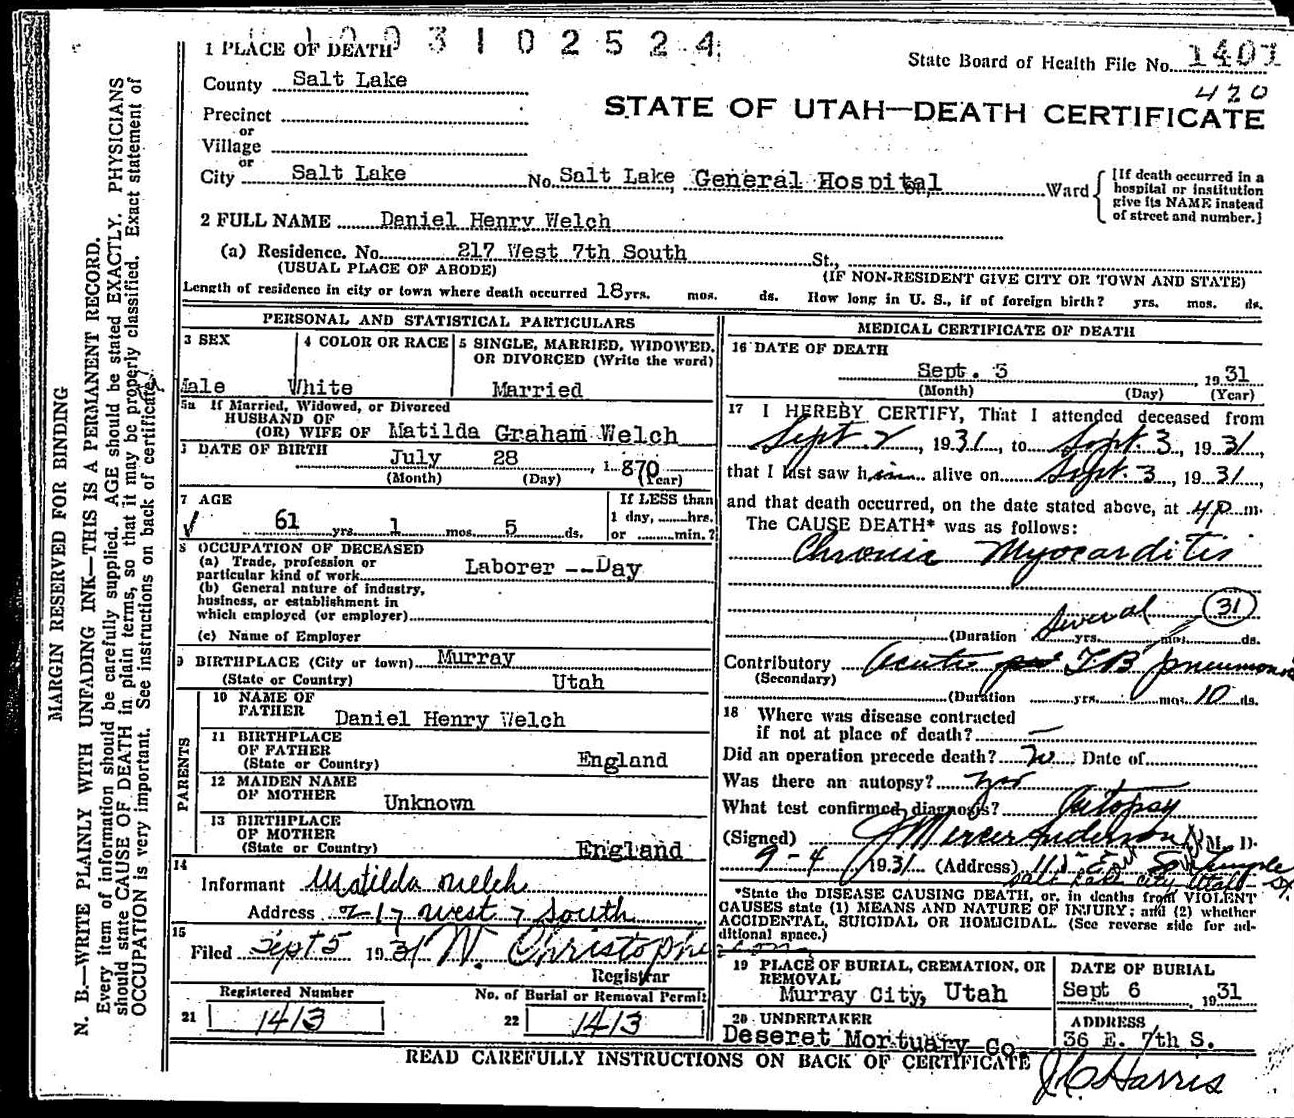 1003102524
1 PLACE OF DEATH
State Board of Health File No. 1401
420
County Salt Lake
STATE OF UTAH—DEATH CERTIFICATE
Precinct
or
Village
or
City Salt Lake No. Salt Lake, General Hospital, Ward
[If death occurred in a
hospital or institution
give its NAME instead
of street and number.]
2 FULL NAME Daniel Henry Welch
(a) Residence. No. 217 West 7th South St.,
(USUAL PLACE OF ABODE) (IF NON-RESIDENT GIVE CITY OR TOWN AND STATE)
Length of residence in city or town where death occurred 18 yrs. mos. ds. How long in U. S., if of foreign birth? yrs. mos. ds.
PERSONAL AND STATISTICAL PARTICULARS
3 SEX 4 COLOR OR RACE 5 SINGLE, MARRIED, WIDOWED,
OR DIVORCED (Write the word)
Male White Married
5a If Married, Widowed, or Divorced
HUSBAND OF
(OR) WIFE OF Matilda Graham Welch
DATE OF BIRTH
July 28, 1870
(Month) (Day) (Year)
7 AGE If LESS than
1 day, hrs.
61 yrs. 1 mos. 5 ds. or min.?
8 OCCUPATION OF DECEASED
(a) Trade, profession or
particular kind of work Laborer --Day
(b) General nature of industry,
business, or establishment in
which employed (or employer)
(c) Name of Employer
9 BIRTHPLACE (City or town) Murray
(State or Country) Utah
PARENTS
10 NAME OF
FATHER Daniel Henry Welch
11 BIRTHPLACE
OF FATHER
(State or Country) England
12 MAIDEN NAME
OF MOTHER Unknown
13 BIRTHPLACE
OF MOTHER
(State or Country) England
14
Informant Matilda Welch
Address 217 West 7 South
15
Filed Sept 5 1931 W. Christopherson
Registrar
Registered Number No. of Burial or Removal Permit
21 1413 22 1413
MEDICAL CERTIFICATE OF DEATH
16 DATE OF DEATH
Sept. 3, 1931
(Month) (Day) (Year)
17 I HEREBY CERTIFY, That I attended deceased from
Sept 2, 1931, to Sept. 3, 1931,
that I last saw him alive on Sept. 3, 1931,
and that death occurred, on the date stated above, at 4 p m.
The CAUSE DEATH* was as follows:
Chronic Myocarditis
31
(Duration Several yrs. mos. ds.
Contributory Acute TB pneumonia
(Secondary)
(Duration yrs. mos. 10 ds.
18 Where was disease contracted
if not at place of death? —
Did an operation precede death? no Date of
Was there an autopsy? yes
What test confirmed diagnosis? Autopsy
(Signed) J Mercer Anderson M. D.
9-4 1931 (Address) 115 E South Temple St
Salt Lake City Utah
*State the DISEASE CAUSING DEATH, or, in deaths from VIOLENT
CAUSES state (1) MEANS AND NATURE OF INJURY; and (2) whether
ACCIDENTAL, SUICIDAL OR HOMICIDAL. (See reverse side for ad-
ditional space.)
19 PLACE OF BURIAL, CREMATION, OR
REMOVAL
Murray City, Utah
DATE OF BURIAL
Sept 6, 1931
20 UNDERTAKER
Deseret Mortuary Co.
ADDRESS
36 E. 7th S.
READ CAREFULLY INSTRUCTIONS ON BACK OF CERTIFICATE
J C Harris
MARGIN RESERVED FOR BINDING
N. B.—WRITE PLAINLY WITH UNFADING INK—THIS IS A PERMANENT RECORD.
Every item of information should be carefully supplied. AGE should be stated EXACTLY. PHYSICIANS
should state CAUSE OF DEATH in plain terms, so that it may be properly classified. Exact statement of
OCCUPATION is very important. See instructions on back of certificate.